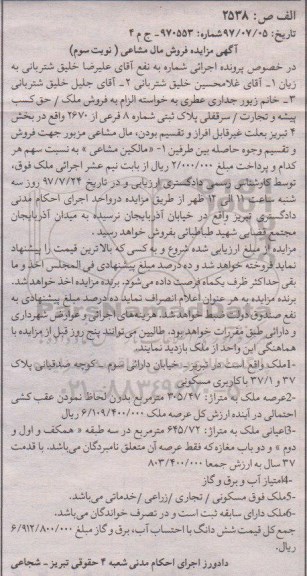 الف ص: ۲۵۳۸
تاریخ: ۹۷/۰۷/۰۵شماره: ۹۷۰۵۵۳- ج م ۴
آگهی مزایده فروش مال مشاعی ( نوبت سوم)
در خصوص پرونده اجرائی شماره به نفع آقای علیرضا خلیق شتربانی به
زیان ۱- آقای غلامحسین خلیق شتربانی ۲- آقای جلیل خلیق شتربانی
۳- خانم زیور جداری عطری به خواسته الزام به فروش ملک / حق کسب
پیشه و تجارت / سرقفلی پلاک ثبتی شماره ۸ فرعی از ۲۶۷۰ واقع در بخش
۴ تبریز بعلت غیرقابل افراز و تقسیم بودن، مال مشاعی مزبور جهت فروش
و تقسیم وجوه حاصله بین طرفین ۱- «مالکین مشاعی » به نسبت سهم هر
کدام و پرداخت مبلغ ۲/۰۰۰/۰۰۰ ریال از بابت نیم عشر اجرائی ملک فوق،
توسط کارشناس رسمی دادگستری ارزیابی و در تاریخ ۹۷/۷/۲۴ روز سه
شنبه ساعت ۱۱ الی ۱۲ ظهر از طریق مزایده درواحد اجرای احکام مدنی
دادگستری تبریز واقع در خیابان آذربایجان نرسیده به میدان آذربایجان
مجتمع قضایی شهید طباطبائی بفروش خواهد رسید.
مزایده از مبلغ ارزیابی شده شروع و به کسی که بالاترین قیمت را پیشنهاد
نماید فروخته خواهد شد و ده درصد مبلغ پیشنهادی فی المجلس اخذ و ما
بقی حداکثر ظرف یکماه فرصت داده می‌شود. برنده مزایده اخذ خواهد شد.
برنده مزایده به هر عنوان اعلام انصراف نماید ده درصد مبلغ پیشنهادی به
نفع صندوق دولت ضبط خواهد شد. هزینه‌های اجرائی و عوارض شهرداری
و دارائی طبق مقررات خواهد بود. طالبین می‌توانند پنج روز قبل از مزایده با
هماهنگی این واحد از ملک بازدید نمایند.
-1ملک واقع است در تبریز- خیابان دارائی سوم - کوچه صدقیانی پلاک
۳۷ و ۳۷/۱ با کاربری مسکونی
-2عرصه ملک به متراژ: ۳۰۵/۴۷ مترمربع بدون لحاظ نمودن عقب کشی
احتمالی در آینده ارزش کل عرصه ملک ۶/۱۰۹/۴۰۰/۰۰۰ ریال
-3اعیانی ملک به متراژ: ۶۴۵/۷۲ مترمربع در سه طبقه « همکف و اول و
دوم » و دو باب مغازه که فقط عرصه آن متعلق نامبردگان می‌باشد. با قدمت
۳۷ سال به ارزش جمعا ۸۰۳/۴۰۰/۰۰۰
-4امتیاز آب و برق و گاز
-5ملک فوق مسکونی / تجاری /زراعی /خدماتی می‌باشد.
-6ملک دارای سابقه ثبت است و در تصرف خواندگان می‌باشد.
جمع کل قیمت شش دانگ با احتساب آب، برق و گاز مبلغ ۶/۹۱۲/۸۰۰/۰۰۰
ریال
دادورز اجرای احکام مدنی شعبه ۴ حقوقی تبریز - شجاعی